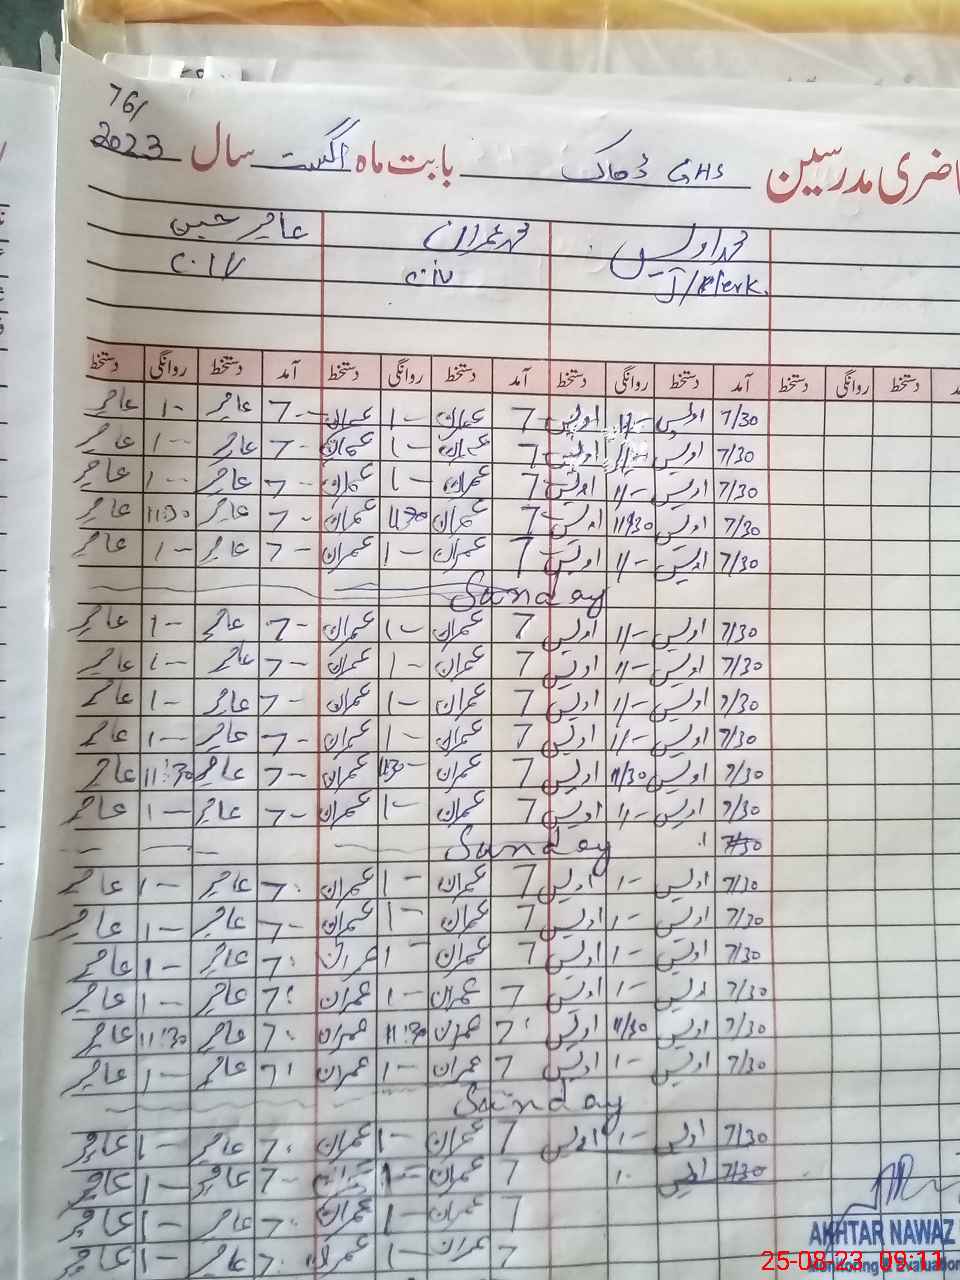 76/
حاضری مدرسین GHS ڈھاک بابت ماہ اگست سال 2023
محمد اویس محمد عمران عامر حسین
J/Klerk. C.IV C.IV
دستخط روانگی دستخط آمد دستخط روانگی دستخط آمد دستخط روانگی دستخط
7/30 اویس 1/- اویس 7 عمران 1- عمران 7- عامر 1- عامر
7/30 اویس 1/- اویس 7 عمران 1- عمران 7- عامر 1- عامر
7/30 اویس 1/- اویس 7 عمران 1- عمران 7- عامر 1- عامر
7/30 اویس 11/30 اویس 7 عمران 11:30 عمران 7- عامر 11:30 عامر
7/30 اویس 1/- اویس 7 عمران 1- عمران 7- عامر 1- عامر
Sunday
7/30 اویس 1/- اویس 7 عمران 1- عمران 7- عامر 1- عامر
7/30 اویس 1/- اویس 7 عمران 1- عمران 7- عامر 1- عامر
7/30 اویس 1/- اویس 7 عمران 1- عمران 7- عامر 1- عامر
7/30 اویس 1/- اویس 7 عمران 1- عمران 7- عامر 1- عامر
7/30 اویس 11/30 اویس 7 عمران 11:30 عمران 7- عامر 11:30 عامر
7/30 اویس 1/- اویس 7 عمران 1- عمران 7- عامر 1- عامر
7/30 Sunday
7/30 اویس 1- اویس 7 عمران 1- عمران 7- عامر 1- عامر
7/30 اویس 1- اویس 7 عمران 1- عمران 7- عامر 1- عامر
7/30 اویس 1- اویس 7 عمران 1- عمران 7- عامر 1- عامر
7/30 اویس 1- اویس 7 عمران 1- عمران 7- عامر 1- عامر
7/30 اویس 11/30 اویس 7 عمران 11:30 عمران 7- عامر 11:30 عامر
7/30 اویس 1- اویس 7 عمران 1- عمران 7- عامر 1- عامر
Sunday
7/30 اویس 1- اویس 7 عمران 1- عمران 7- عامر 1- عامر
7/30 اویس 1- 7 عمران 1- عمران 7- عامر 1- عامر
7 عمران 1- عمران 7- عامر 1- عامر
7 عمران 1- عمران 7- عامر 1- عامر
AKHTAR NAWAZ
Monitoring & Evaluation
25-08-23 09:11